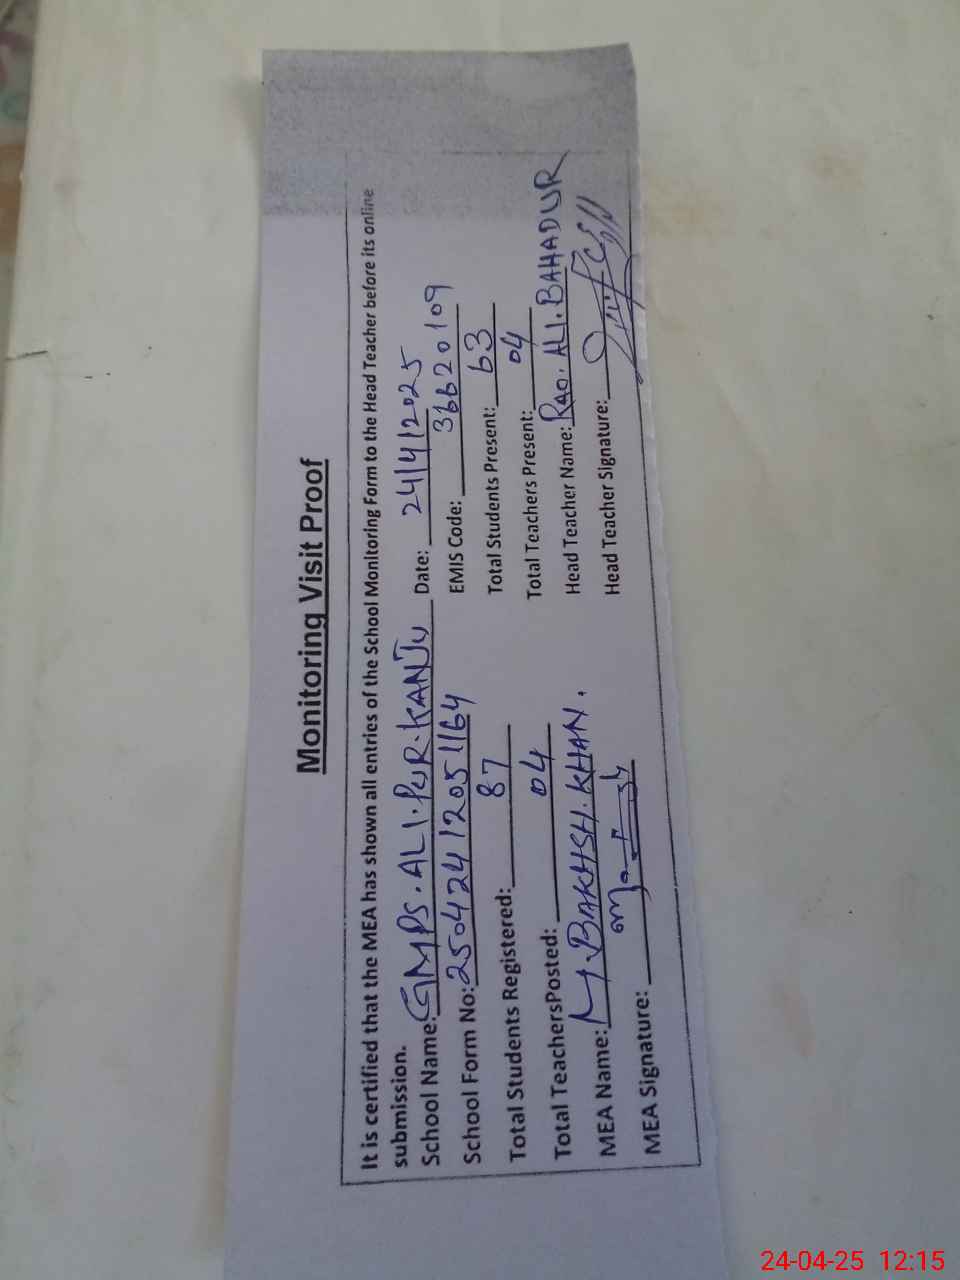 Monitoring Visit Proof
It is certified that the MEA has shown all entries of the School Monitoring Form to the Head Teacher before its online
submission.
School Name: GMPS. ALI. PUR. KANJU Date: 24/4/2025
School Form No: 25042412051164 EMIS Code: 36620109
Total Students Registered: 87 Total Students Present: 63
Total TeachersPosted: 04 Total Teachers Present: 04
MEA Name: M. BAKHSH. KHAN. Head Teacher Name: RAO. ALI. BAHADUR
MEA Signature: Head Teacher Signature:
24-04-25 12:15